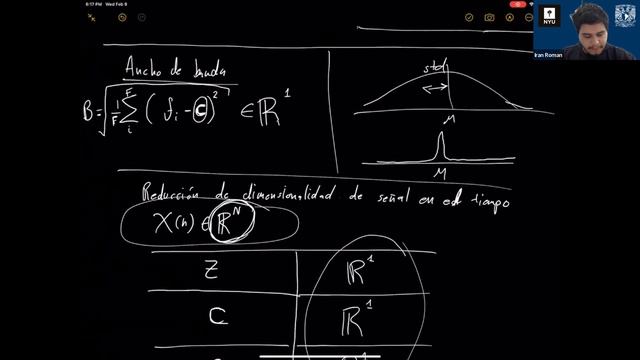 6:17 PM Wed Feb 9
NYU
Iran Roman
Ancho de banda
B = √(1/F Σ_i^F (f_i - C)²) ∈ ℝ¹
std
μ
μ
Reducción de dimensionalidad de señal en el tiempo
X(n) ∈ ℝᴺ
Z ℝ¹
C ℝ¹